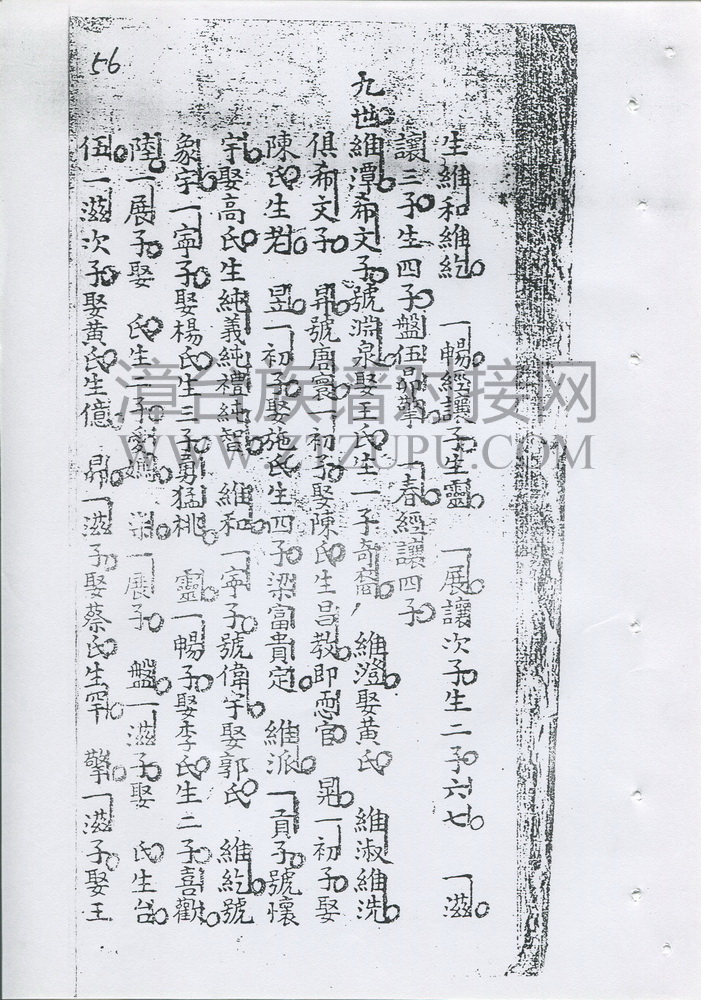 56
生維和維紇 一暢經讓子生靈 一展讓次子生二子六七 一滋
讓三子生四子盤伍昴擎 一春經讓四子
九世維潭希文子號淵泉娶王氏生一子奇裔 維澄娶黃氏 維淑維洗
俱希文子 昇號唐寰一初子娶陳氏生昌教即愿官 晃一初子娶
陳氏生若 昱一初子娶施氏生四子梁富貴定 維派一貢子號懷
宇娶高氏生純義純禮純智 維和一寧子號偉宇娶郭氏 維紇號
象宇一寧子娶楊氏生三子勇猛桃 靈一暢子娶李氏生二子喜歡
陸一展子娶 氏生二子 一展子 盤一滋子娶 氏生台
伍一滋次子娶黃氏生億 昴一滋子娶蔡氏生罕 擎一滋子娶王
漳台族谱对接网
WWW.ZTZUPU.COM